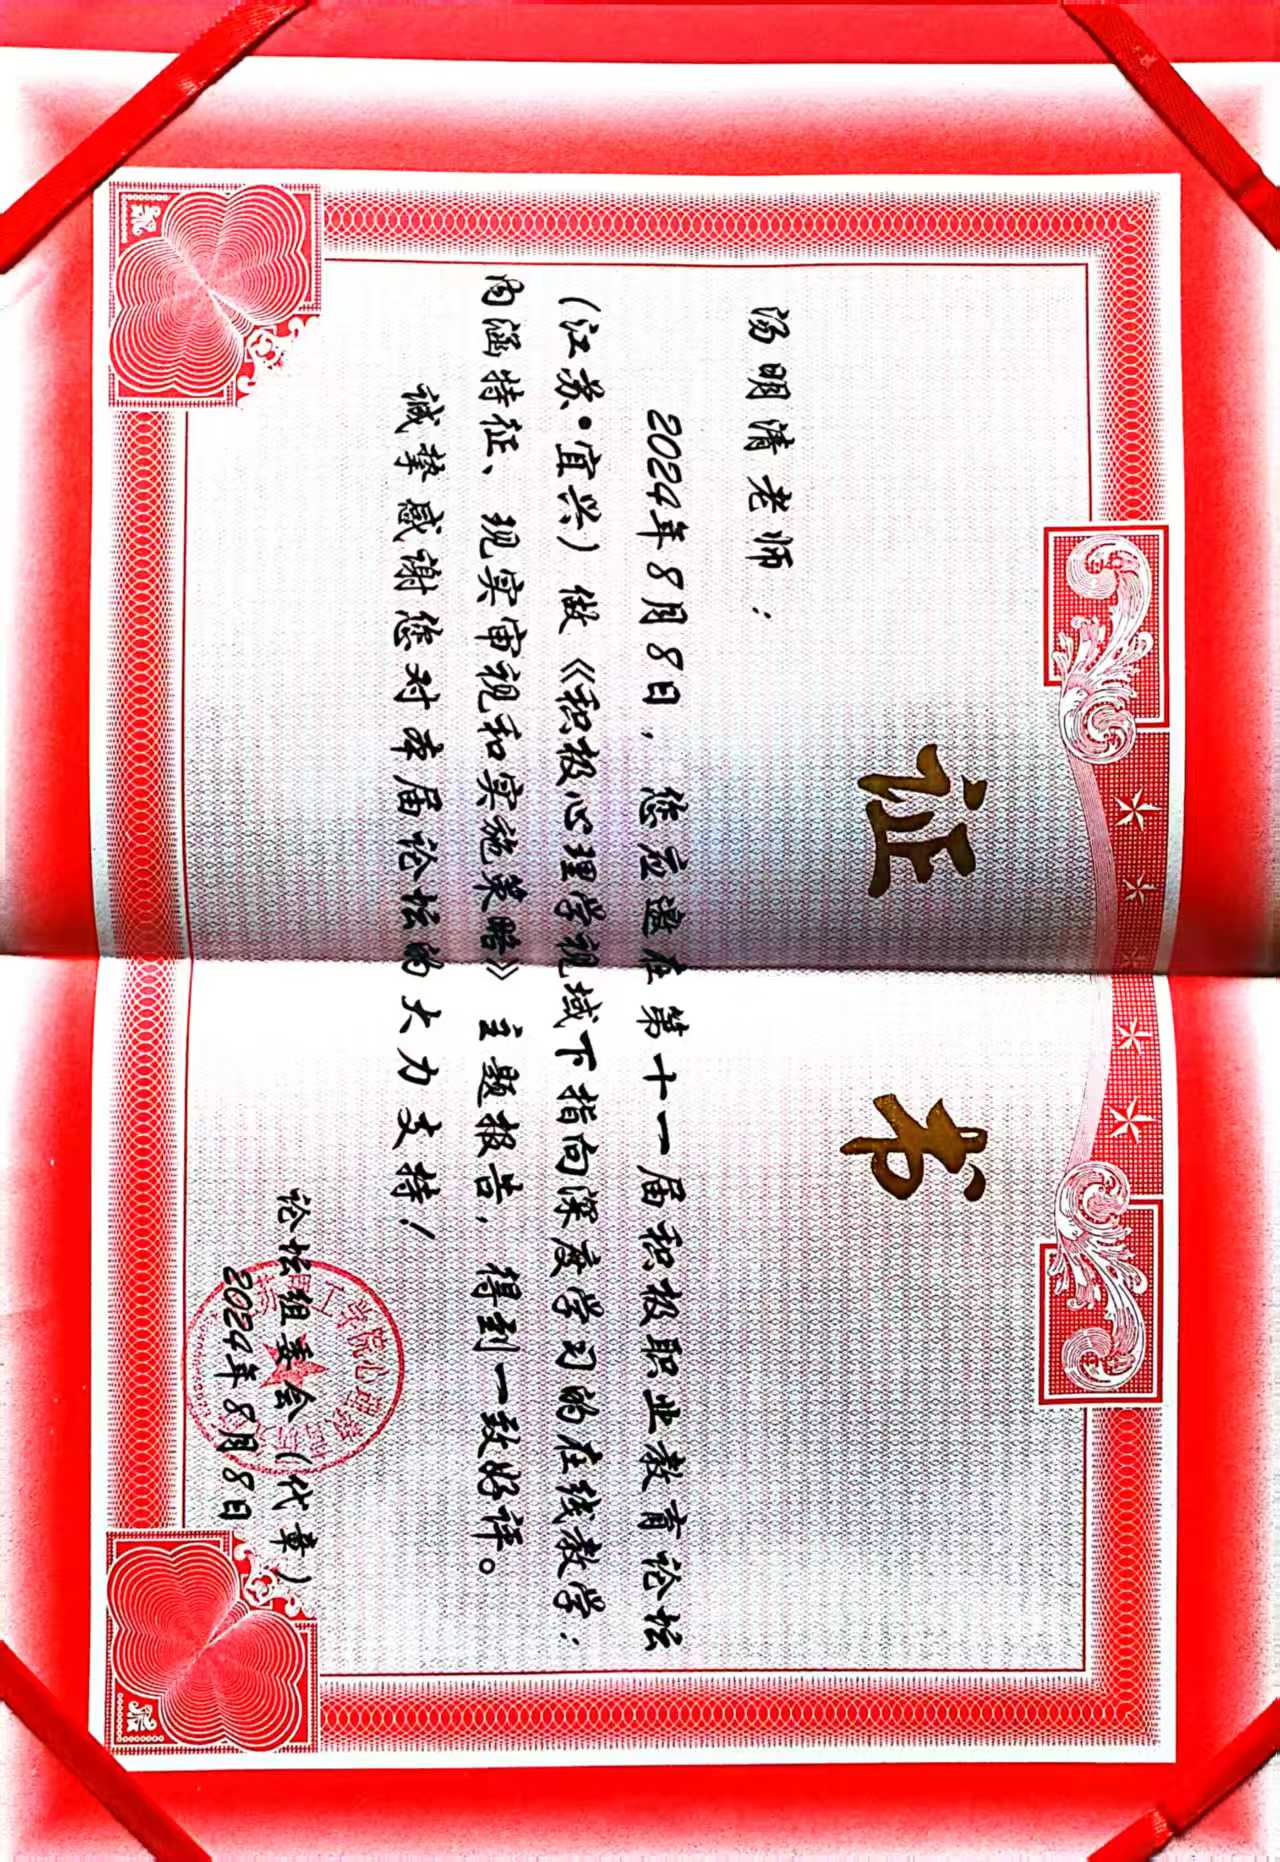 证书
汤明清老师：
2024年8月8日，您应邀在第十一届积极职业教育论坛
（江苏•宜兴）做《积极心理学视域下指向深度学习的在线教学：
内涵特征、现实审视和实施策略》主题报告，得到一致好评。
诚挚感谢您对本届论坛的大力支持！
论坛组委会（代章）
2024年8月8日